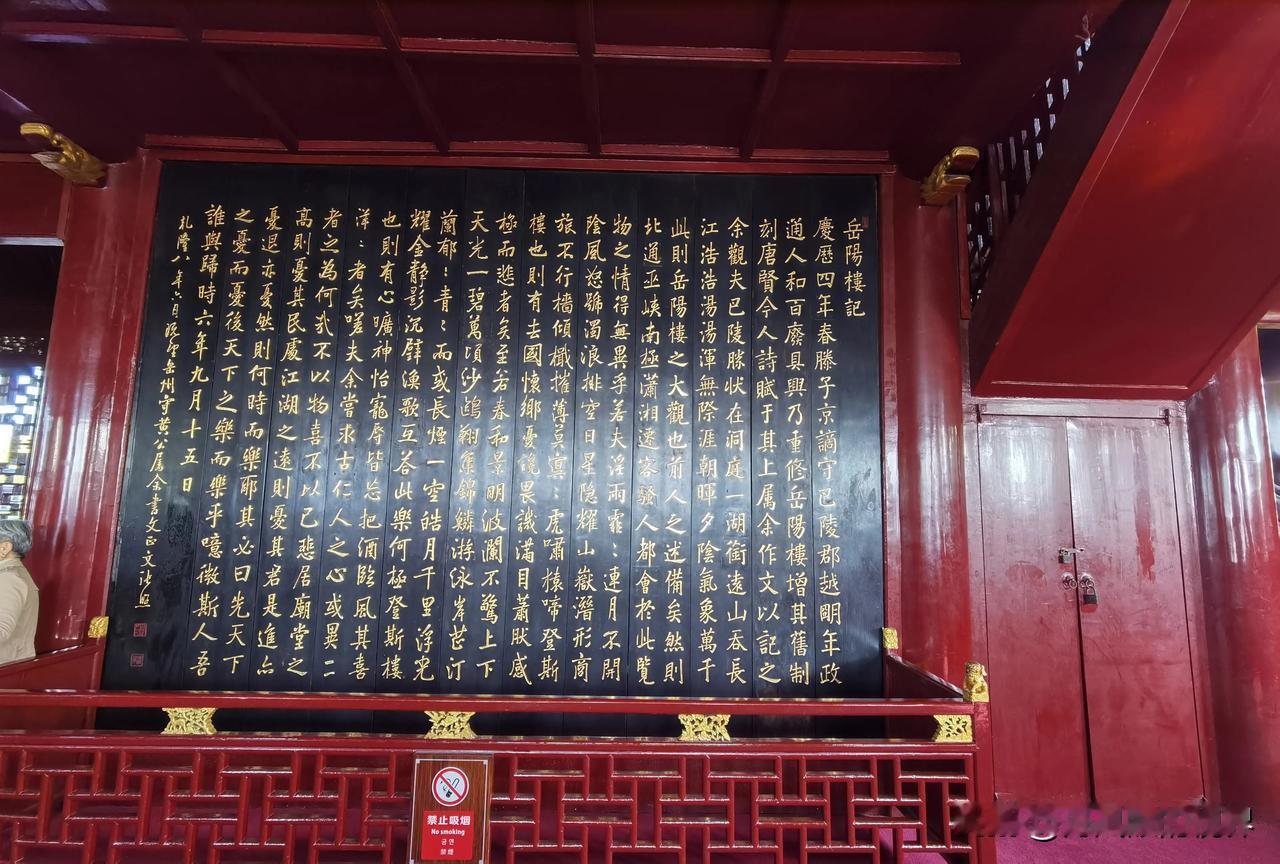 岳陽樓記
慶歷四年春滕子京謫守巴陵郡越明年政
通人和百廢具興乃重修岳陽樓增其舊制
刻唐賢今人詩賦于其上属余作文以記之
余觀夫巴陵勝狀在洞庭一湖銜遠山吞長
江浩浩湯湯渾無際涯朝暉夕陰氣象萬千
此則岳陽樓之大觀也前人之述備矣然則
北通巫峽南極瀟湘遷客騷人都會於此覽
物之情得無異乎若夫淫雨霏〻連月不開
陰風怒號濁浪排空日星隱耀山嶽潛形商
旅不行檣傾檝摧薄莫冥〻虎嘯猿啼登斯
樓也則有去國懷鄉憂讒畏譏滿目蕭然感
極而悲者矣至若春和景明波瀾不驚上下
天光一碧萬頃沙鷗翔集錦鱗游泳岸芷汀
蘭郁〻青〻而或長煙一空皓月千里浮光
耀金静影沉璧漁歌互答此樂何極登斯樓
也則有心曠神怡寵辱皆忘把酒臨風其喜
洋〻者矣嗟夫余嘗求古仁人之心或異二
者之為何哉不以物喜不以己悲居廟堂之
高則憂其民處江湖之遠則憂其君是進亦
憂退亦憂然則何時而樂耶其必曰先天下
之憂而憂後天下之樂而樂乎噫微斯人吾
誰與歸時六年九月十五日
乾隆八年六月既望岳州守黃公属余書文正文張照
禁止吸烟
No smoking
금연
禁煙